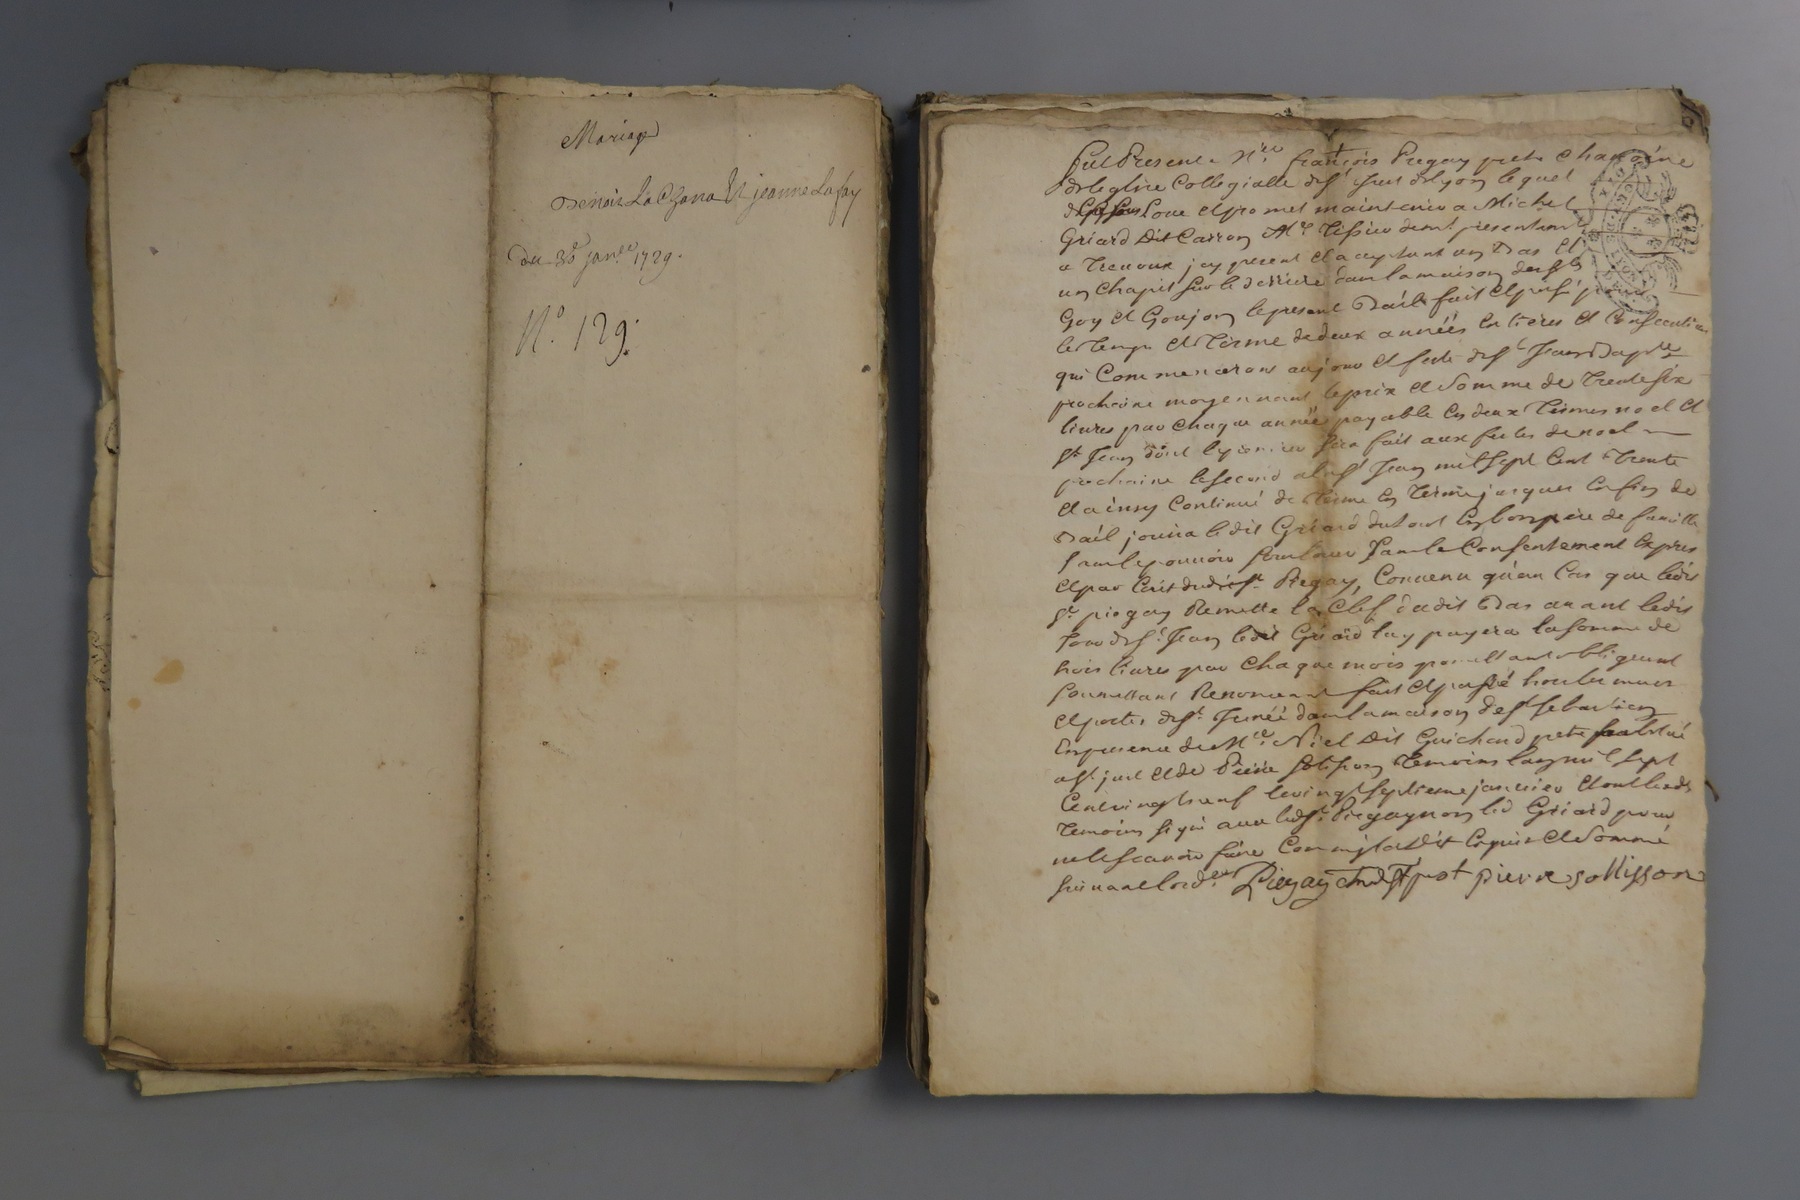 Mariage
Benoit La Chana Et jeanne Lafay
du 30 janv.er 1729.
N.o 129.
fut Present Mre françois Piegay pretre Chanoine
de leglise Collegialle de st just de lyon lequel
Loue et promet maintenir a Michel
Griard Dit Carron Me Tissieu demt presentement
a Trevoux jcy present et acceptant un Bas et
un Chapit sur le derriere dans la maison des srs
Goy et Goujon le present Bail fait et passé pour
le temps et Terme de deux années Entieres et Consecutives
qui Commenceront au jour et feste de st Jean Baptte
prochaine moyennant le prix et Somme de Trente six
livres par chaque année payable En deux Termes noel et
st Jean dont le premier sera fait aux festes de noel
prochaine le second a la st Jean mil sept Cent Trente
et ainsy Continué de Terme En Terme jusques En fin de
Bail jouira ledit Griard du tout En bon pere de famille
sans le pouvoir sous louer sans le Consentement Expres
et par Ecrit dudit sr Piegay, Convenu qu'au Cas que ledit
sr piegay Remette la Clef dudit Bas avant ledit
Jour de st Jean ledit Griard luy payera la somme de
trois livres par Chaque mois promettant obligeant
soumettant Renonceant fait et passé hors les murs
et portes de st Irenée dans la maison de st sebastien
En presence de Mre Niel Dit Guichard pretre habitué
a st just et de Pierre Sotisson Temoins l'an mil sept
Cent vingt neuf le vingt septieme janvier et ont lesdts
Temoins signé avec ledt sr Piegay non led Griard pour
ne le scavoir faire Comme il a Dit Enquis et Sommé
suivant lord.ce Piegay Chne de St Just pierre sottisson